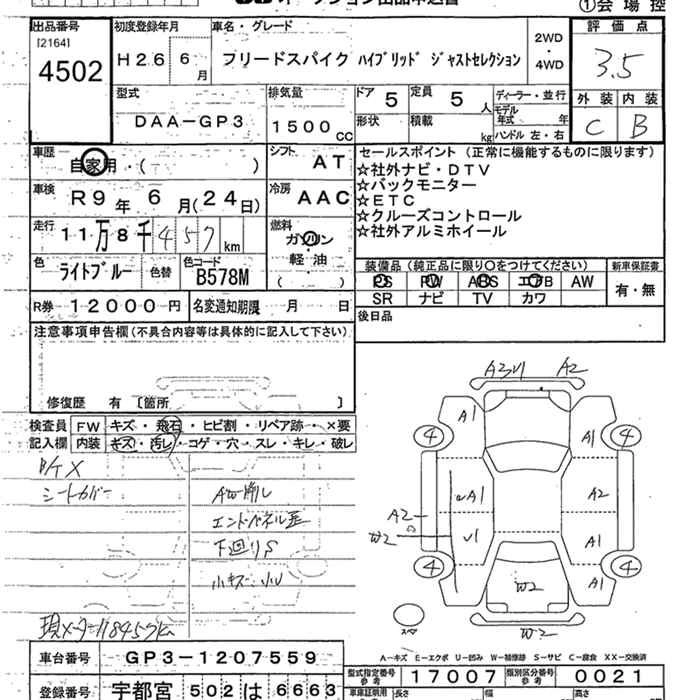 オークション出品申込書
①会場控
出品番号
[2164]
4502
初度登録年月
H26 6月
車名・グレード
フリードスパイク ハイブリッド ジャストセレクション
2WD
・
4WD
評価点
3.5
外装 内装
C B
型式
DAA-GP3
排気量
1500cc
ドア 5
定員 5人
形状
積載 kg
ディーラー・並行
モデル年式 年
ハンドル 左・右
車歴
自家用・( )
シフト AT
車検
R9年 6月(24日)
冷房 AAC
走行
11万8千457km
燃料
ガソリン
・
軽油
( )
色
ライトブルー
色替
色コード
B578M
R券 12000円
名変通知期限 月 日
セールスポイント (正常に機能するものに限ります)
☆社外ナビ・DTV
☆バックモニター
☆ETC
☆クルーズコントロール
☆社外アルミホイール
装備品(純正品に限り○をつけてください)
新車保証書
PS PW ABS エアB AW
SR ナビ TV カワ
有・無
後日品
注意事項申告欄(不具合内容等は具体的に記入して下さい)
修復歴 有 [箇所 ]
検査員記入欄
FW キズ・飛石・ヒビ割・リペア跡・×要
内装 キズ・汚レ・コゲ・穴・スレ・キレ・破レ
シートカバー
AW削レ
エンドパネル歪
下廻りS
小キズ・小U
現メーター118457km
A2 A2
A1 A1
4 4
A1 A2
A2
W2
A1
4 4
A1
W2
W2
スペア
A-キズ E-エクボ U-凹み W-補修跡 S-サビ C-腐食 XX-交換済
車台番号 GP3-1207559
登録番号 宇都宮 502 は 6663
型式指定番号 参考 17007
類別区分番号 参考 0021
長さ 幅 高さ